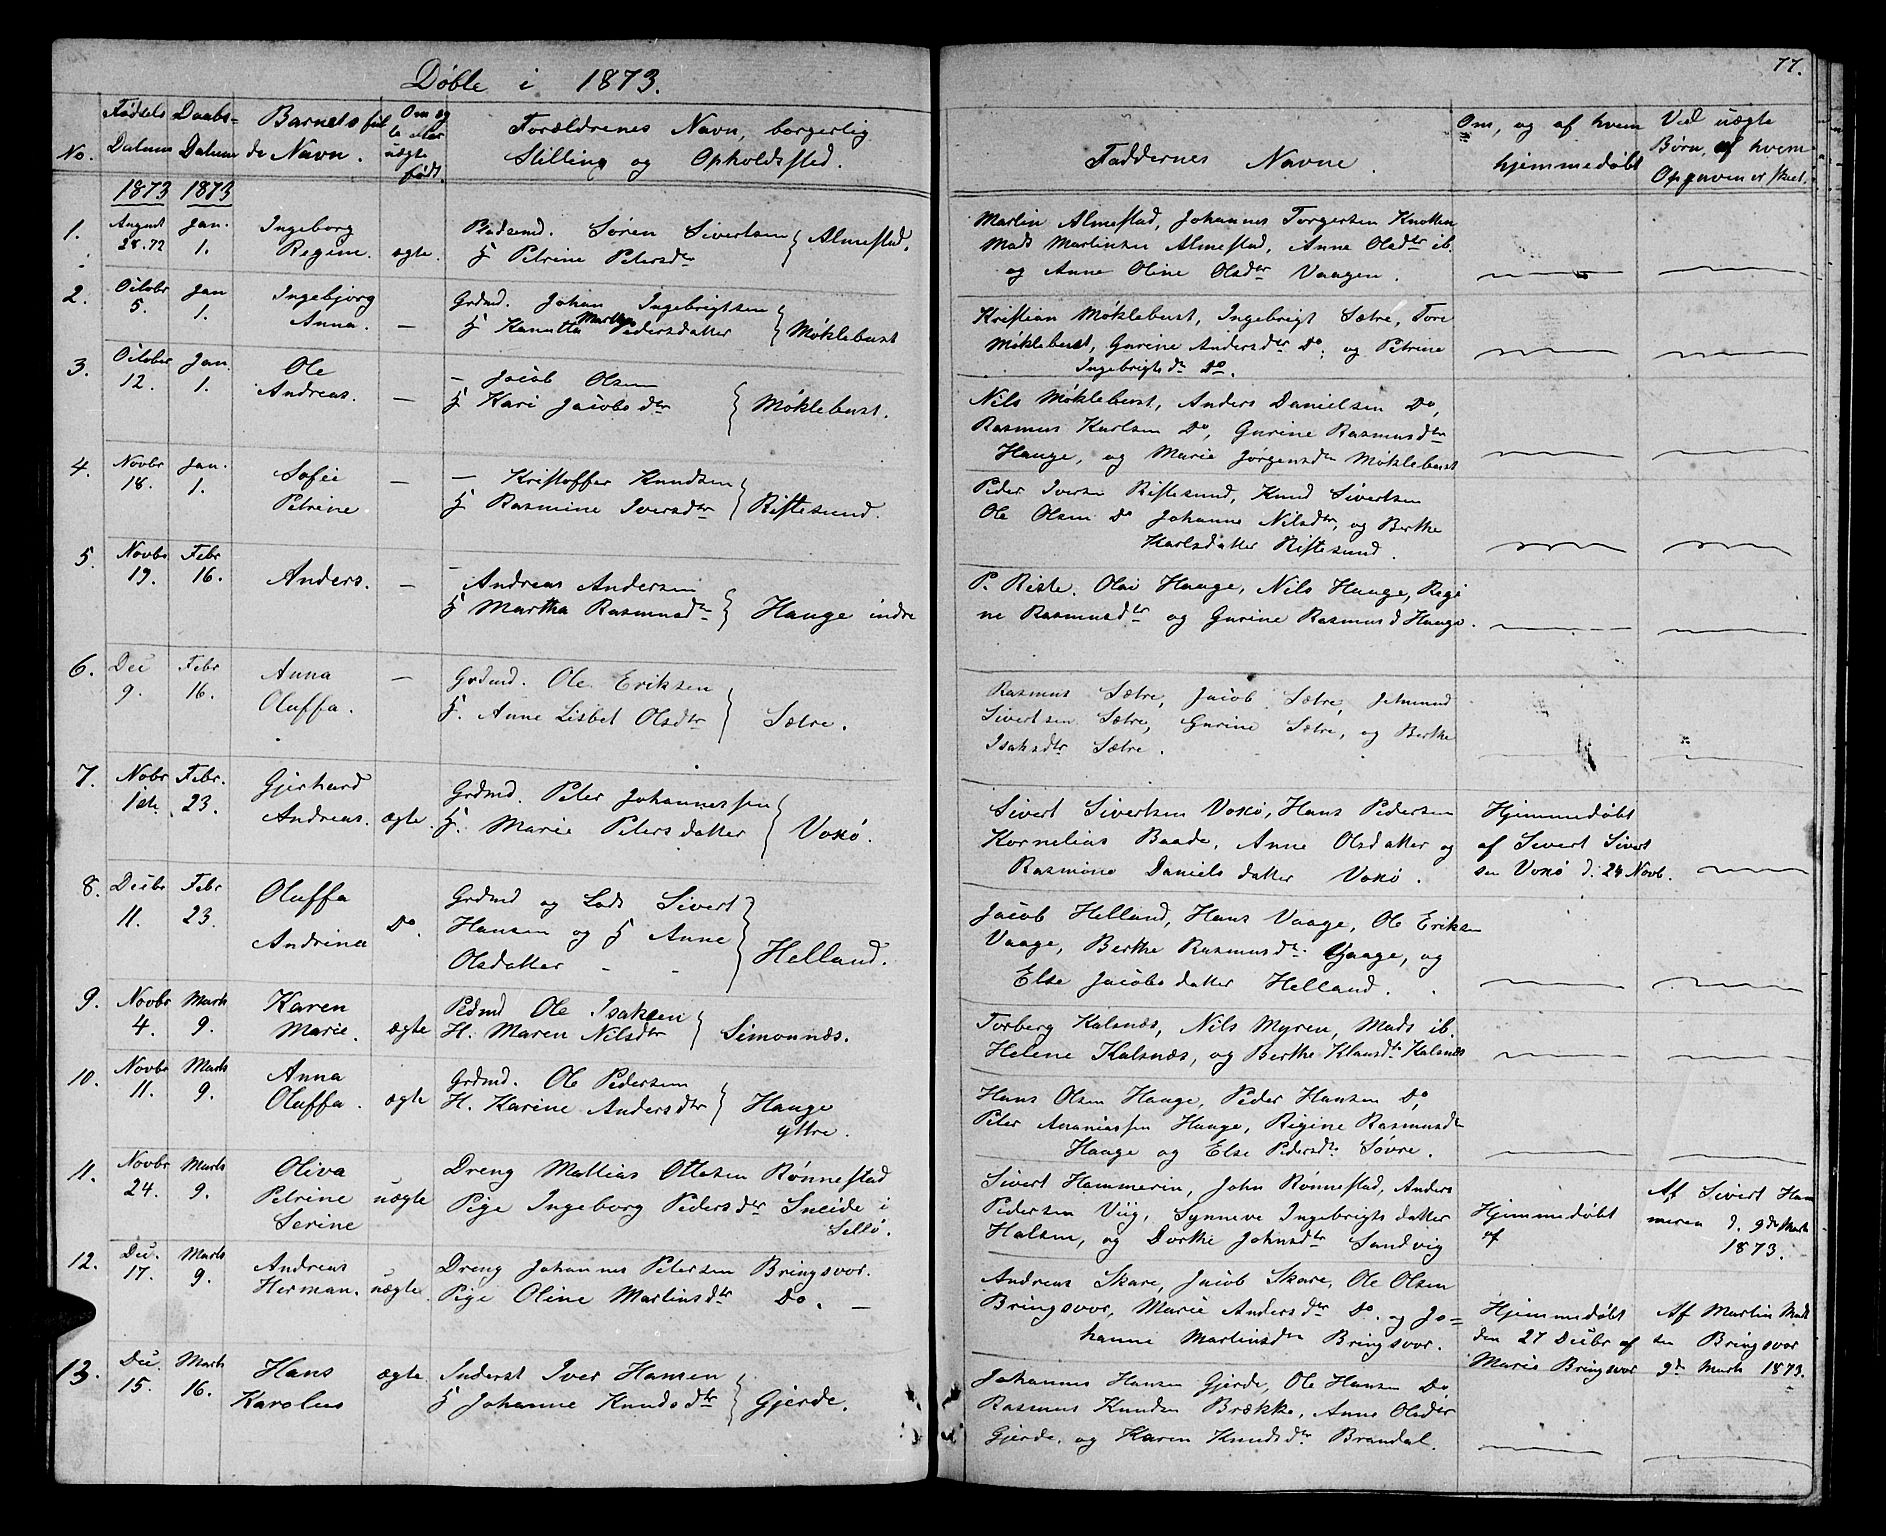 Døbte i 1873.
77.
No.
Fødsels Datum
Daabs-Datum
Barnets fulde Navn.
Om ægte eller uægte født.
Forældrenes Navn, borgerlig Stilling og Opholdsted.
Faddernes Navne.
Om, og af hvem hjemmedøbt
Ved uægte Børn, af hvem Opgaven er skeet.
1873 1873
1. August 28.72 Jan. 1. Ingeborg Regine. ægte.
Pladsmd. Søren Sivertsen
H Petrine Petersdtr } Almestad.
Martin Almestad, Johannes Torgersen Knotten
Mads Martinsen Almestad, Anne Olsdtr ib.
og Anne Oline Olsdtr Vaagen.
2. Octobr 5. Jan 1. Ingebjørg Anna. —
Grdmd. Johan Ingebrigtsen
H Kanutta Marthe Pedersdatter } Møklebust
Kristian Møklebust, Ingebrigt Sætre, Tore
Møklebust, Gurine Andersdtr Do, og Petrine
Ingebrigtsdr Do.
3. October 12. Jan. 1. Ole Andreas. —
— Jacob Olsen
H Kari Jacobsdtr } Møklebust.
Nils Møklebust, Anders Danielsen Do,
Rasmus Karlsen Do, Gurine Rasmusdtr
Hauge, og Marie Jørgensdtr Møklebust
4. Novbr 18. Jan. 1. Sofie Petrine —
— Kristoffer Knudsen
H Rasmine Iversdtr } Ristesund.
Peder Iversen Ristesund, Knud Sivertsen
Ole Olsen Do Johanne Nilsdtr, og Berthe
Karlsdatter Ristesund.
5. Novbr 19. Febr 16. Anders. —
— Andreas Andersen
H Martha Rasmusdtr } Hauge indre
P. Riste. Olai Hauge, Nils Hauge, Regi
ne Rasmusdtr og Gurine Rasmusd Hauge.
6. Dec 9. Febr 16. Anna Oluffa. —
Grdmd. Ole Eriksen
H. Anne Lisbet Olsdtr } Sætre.
Rasmus Sætre, Jacob Sætre, Jetmund
Sivertsen Sætre, Gurine Sætre, og Berthe
Isaksdtr Sætre.
7. Nobr 1ste. Febr. 23. Gjerhard Andreas. ægte.
Grdmd. Peter Johannessen
H. Marie Petersdatter } Voxø.
Sivert Sivertsen Voxø, Hans Pedersen
Kornelius Baade, Anne Olsdatter og
Rasmine Danielsdatter Voxø.
Hjemmedøbt
af Sivert Sivert
sen Voxø d. 24 Novb.
8. Decbr 11. Febr 23. Oluffa Andrina Do.
Grdmd og Lods Sivert
Hansen og H Anne
Olsdatter - - } Helland.
Jacob Helland, Hans Vaage, Ole Eriksen
Vaage, Berthe Rasmusdr Vaage, og
Else Jacobsdatter Helland.
9. Novbr 4. Marts 9. Karen Marie. ægte
Pldmd Ole Isaksen
H. Maren Nilsdtr } Simonnæs.
Torberg Kalsnæs, Nils Myren, Mads ib.
Helene Kalsnæs, og Berthe Klausdtr Kalsnæs
10. Novbr 11. Marts 9. Anna Oluffa. ægte
Grdmd. Ole Pedersen
H. Karine Andersdtr } Hauge
yttre.
Hans Olsen Hauge, Peder Hansen Do,
Peter Ananiassen Hauge, Rigine Rasmusdtr
Hauge og Else Pedersdtr Søvre.
11. Novbr 24. Marts 9. Oliva Petrine Serine uægte
Dreng Mattias Ottesen Rønnestad
Pige Ingeborg Pedersdtr Sneide i
Selsø.
Sivert Hammerin, John Rønnestad, Anders
Pedersen Viig, Synneve Ingebrigtsdatter
Halsen, og Dorthe Johnsdtr Sandvig
Hjemmedøbt
af
Af Sivert Ham
meren d. 9de Marts
1873.
12. Dec. 17. Marts 9. Andreas Herman. uægte.
Dreng Johannes Petersen Bringsvor.
Pige Oline Martinsdtr Do. —
Andreas Skare, Jacob Skare, Ole Olsen
Bringsvor, Marie Andersdtr Do. og Jo=
hanne Martinsdtr Bringsvor.
Hjemmedøbt
den 27 Decbr af
Marie Bringsvor
Af Martin Mad
sen Bringsvor
9de Marts 1873.
13. Dec. 15. Marts 16. Hans Karolus ægte
Inderst Iver Hansen
H Johanne Knudsdtr } Gjerde.
Johannes Hansen Gjerde, Ole Hansen Do,
Rasmus Knudsen Brække, Anne Olsdtr
Gjerde, og Karen Knudsdtr Brandal.